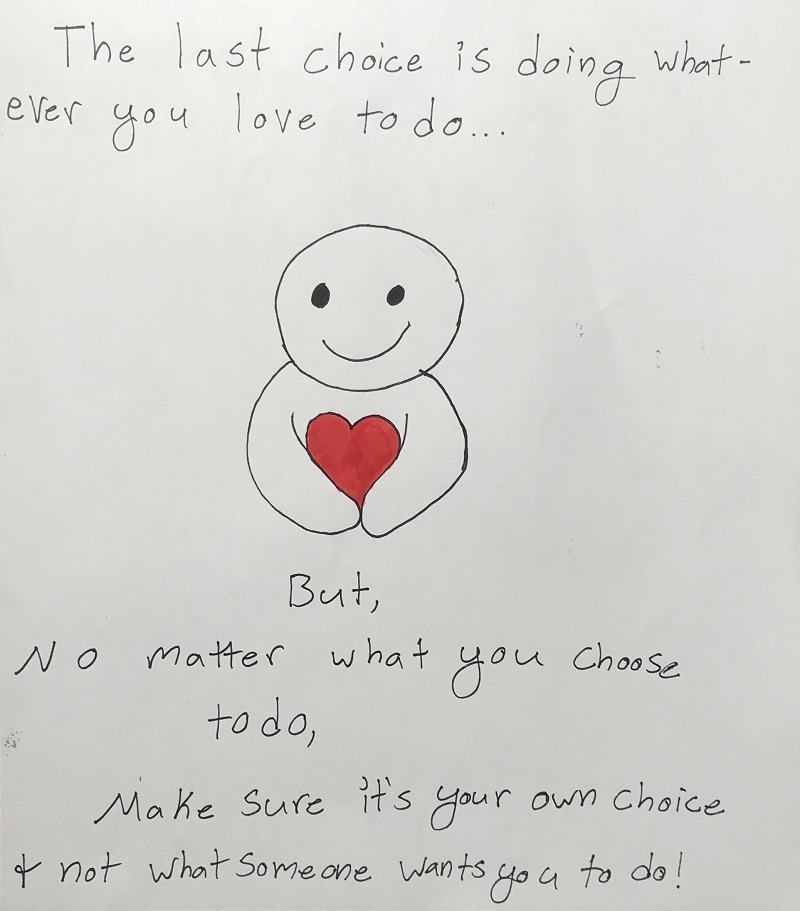 The last choice is doing what-
ever you love to do...
But,
No matter what you choose
to do,
Make sure it's your own choice
& not what someone wants you to do!